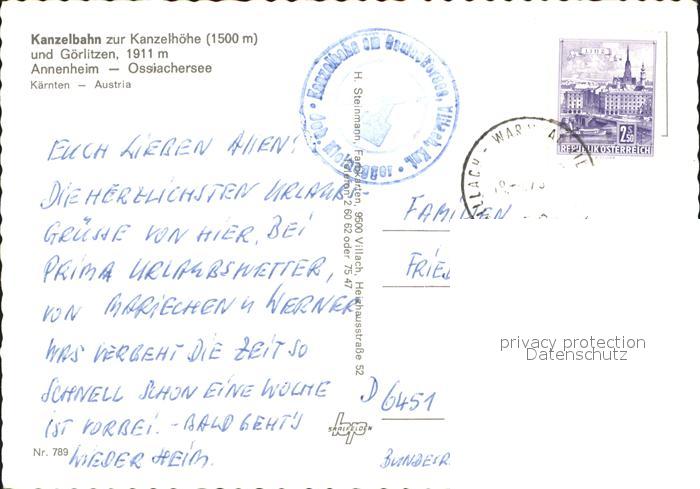 Kanzelbahn zur Kanzelhöhe (1500 m)
und Görlitzen, 1911 m
Annenheim — Ossiachersee
Kärnten — Austria
EUCH LIEBEN ALLEN!
DIE HERZLICHSTEN URLAUBS-
GRÜSSE VON HIER, BEI
PRIMA URLAUBSWETTER,
VON MARIECHEN U WERNER
WAS VERGEHT DIE ZEIT SO
SCHNELL SCHON EINE WOCHE
IST VORBEI. - BALD GEHT'S
WIEDER HEIM.
Nr. 789
H. Steinmann, Farbkarten, 9500 Villach, Heizhausstraße 52
Telefon 2 60 62 oder 75 47
Kanzelbahn am Ossiachersee, Villach, Ktn.
LINZ
2.50
REPUBLIK ÖSTERREICH
VILLACH - WARM
FAMILIEN
FRIED
D 6451
BUNDESR
SAALFELDEN
privacy protection
Datenschutz